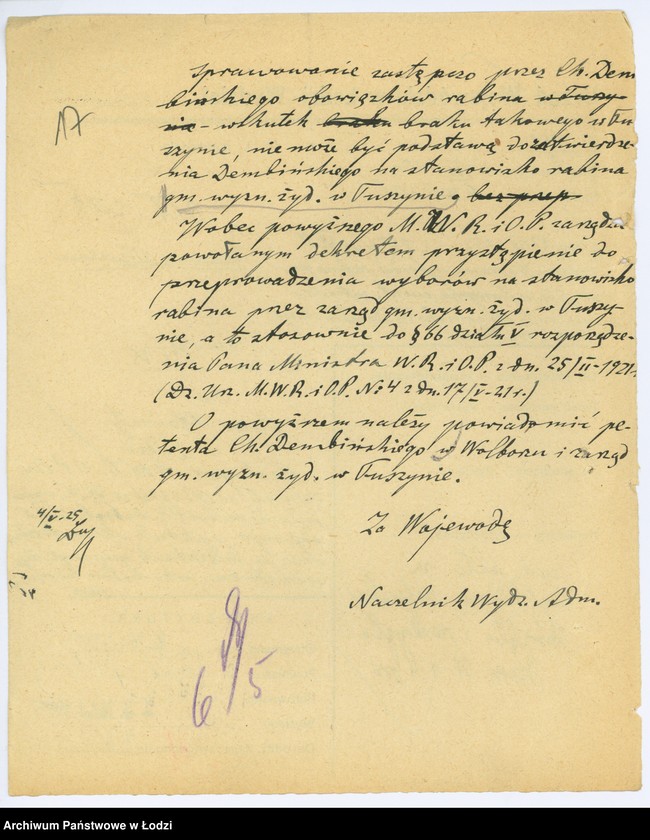 17
sprawowanie zastępczo przez Ch. Dem
bińskiego obowiązków rabina w Tuszy-
nie - wskutek braku braku takowego w Tu
szynie, nie może być podstawą do zatwierdze-
nia Dembińskiego na stanowisko rabina
gm. wyzn. żyd. w Tuszynie, bez przep
Wobec powyższego M. W. R. i O. P. zarządza
powołanym dekretem przystąpienie do
przeprowadzenia wyborów na stanowisko
rabina przez zarząd gm. wyzn. żyd. w Tuszy-
nie, a to stosownie do § 66 działu V rozporządze-
nia Pana Ministra W. R. i O. P. z dn. 25/II-1921.
(Dz. Urz. M. W. R. i O. P. № 4 z dn. 17/V-21 r.)
O powyższem należy powiadomić pe-
tenta Ch. Dembińskiego w Wolborzu i zarząd
gm. wyzn. żyd. w Tuszynie.
4/V-25
Za Wojewodę
Naczelnik Wydz. Adm.
6/5
Archiwum Państwowe w Łodzi